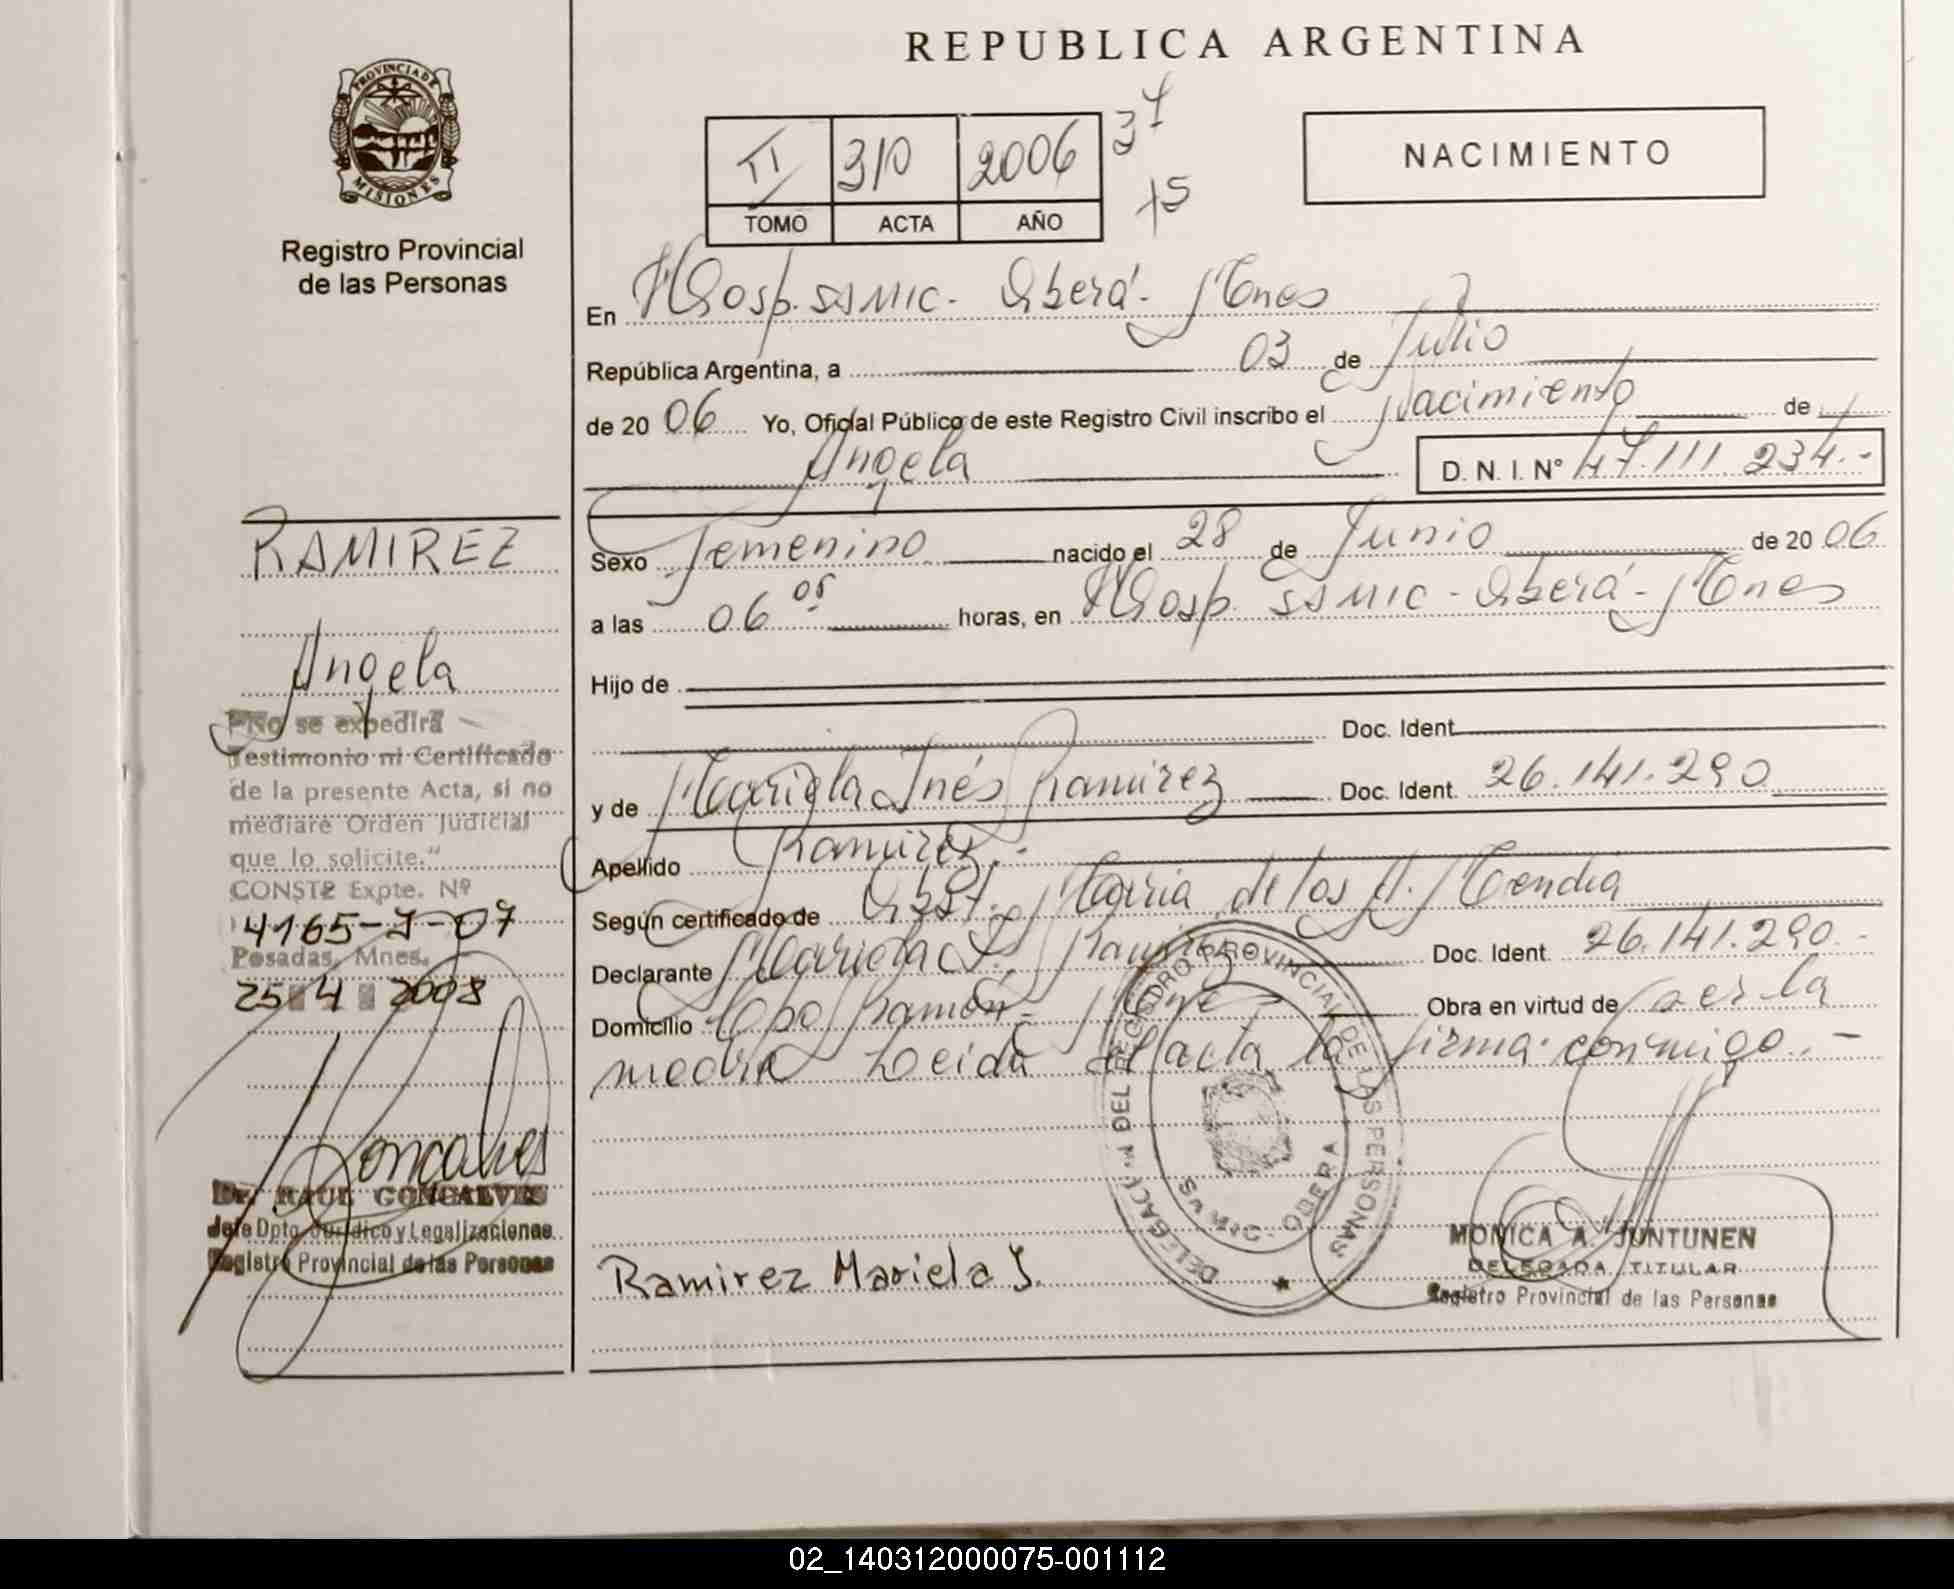 REPUBLICA ARGENTINA
PROVINCIA DE
MISIONES
Registro Provincial
de las Personas
II 310 2006
TOMO ACTA AÑO
37
+5
NACIMIENTO
En Hosp. SAMIC - Oberá - Mnes
República Argentina, a 03 de Julio
de 20 06 Yo, Oficial Público de este Registro Civil inscribo el Nacimiento de
Angela D. N. I. N° 47.111 234.-
Sexo Femenino nacido el 28 de Junio de 20 06
a las 06 05 horas, en Hosp. SAMIC - Oberá - Mnes
Hijo de
Doc. Ident.
y de Mariela Inés Ramirez Doc. Ident. 26.141.290
Apellido Ramirez.-
Según certificado de Obst. Maria de los A. Mendia
Declarante Mariela I. Ramirez Doc. Ident. 26.141.290.-
Domicilio Cabo Ramón - Obra en virtud de ser la
madre Leida el acta la firma conmigo.-
Ramirez Mariela I.
DELEGACION DEL REGISTRO PROVINCIAL DE LAS PERSONAS
OBERA
MONICA A. JUNTUNEN
DELEGADA TITULAR
Registro Provincial de las Personas
RAMIREZ
Angela
"No se expedirá
Testimonio ni Certificado
de la presente Acta, si no
mediare Orden Judicial
que lo solicite."
CONSTE Expte. Nº
4165-J-07
Posadas, Mnes.
25 4 2008
Goncalves
Dr. RAUL GONCALVES
Jefe Dpto. Jurídico y Legalizaciones
Registro Provincial de las Personas
02_140312000075-001112